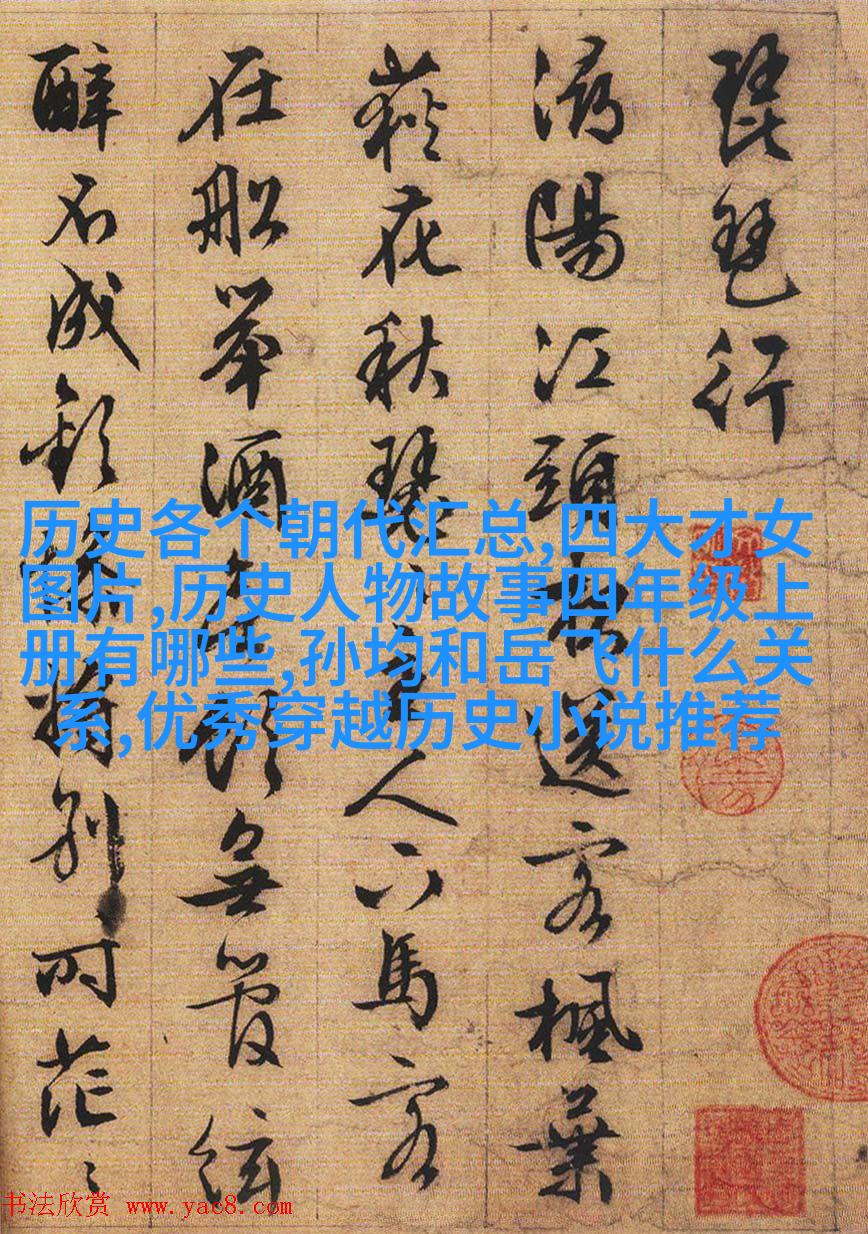 琵琶行
潯陽江頭夜送客楓葉
荻花秋瑟〻主人下馬客
在船舉酒欲飲無管絃
醉不成歡慘將別〻時茫〻
历史各个朝代汇总,四大才女
图片,历史人物故事四年级上
册有哪些,孙均和岳飞什么关
系,优秀穿越历史小说推荐
书法欣赏 www.yac8.com